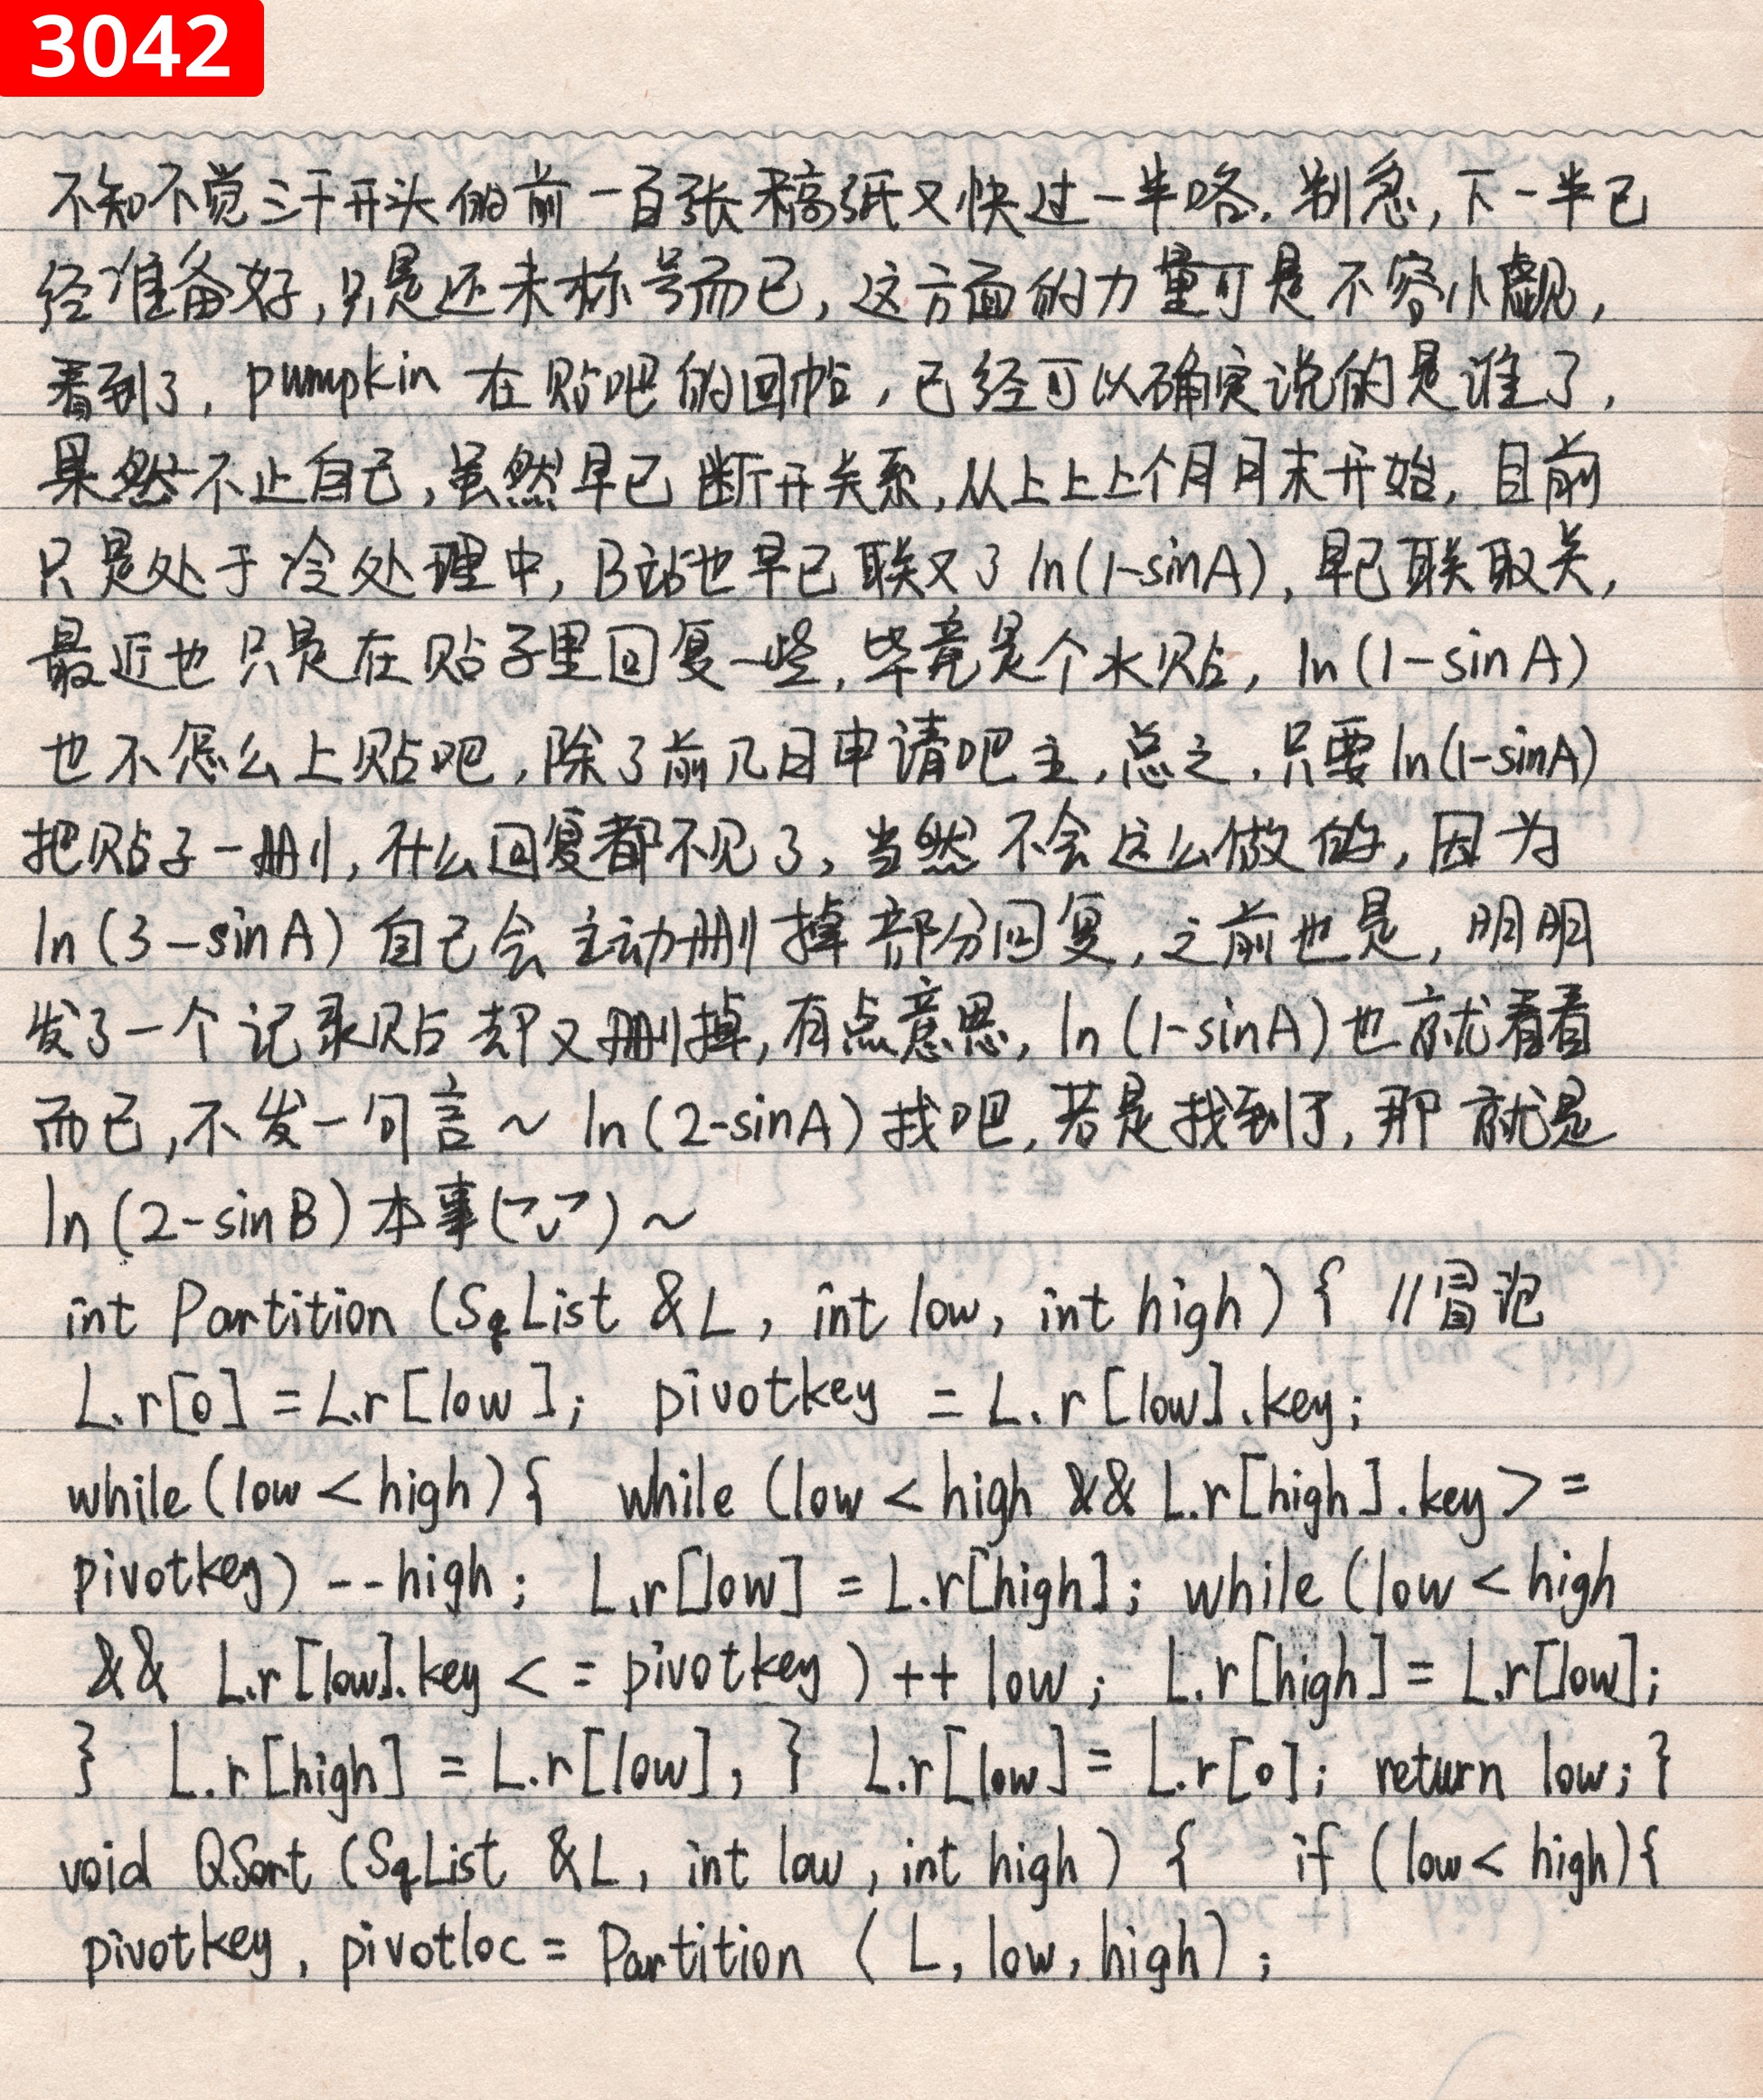 3042
不知不觉三千开头的前一百张稿纸又快过一半咯.别急,下一半已
经准备好,只是还未标号而已,这方面的力量可是不容小觑,
看到了,pumpkin在贴吧的回帖,已经可以确定说的是谁了,
果然不止自己,虽然早已断开关系,从上上上个月月末开始,目前
只是处于冷处理中,B站也早已取关了ln(1-sinA),早已取关,
最近也只是在贴子里回复一些,毕竟是个水贴,ln(1-sinA)
也不怎么上贴吧,除了前几日申请吧主,总之,只要ln(1-sinA)
把贴子一删,什么回复都不见了,当然不会这么做的,因为
ln(3-sinA)自己会主动删掉部分回复,之前也是,明明
发了一个记录贴却又删掉,有点意思,ln(1-sinA)也就看看
而已,不发一句言~ln(2-sinA)找吧,若是找到了,那就是
ln(2-sinB)本事(乛ᴗ乛)~
int Partition (SqList &L, int low, int high) { //冒泡
L.r[0] = L.r[low]; pivotkey = L.r[low].key;
while (low < high) { while (low < high && L.r[high].key > =
pivotkey) --high; L.r[low] = L.r[high]; while (low < high
&& L.r[low].key < = pivotkey) ++ low; L.r[high] = L.r[low];
} L.r[high] = L.r[low], } L.r[low] = L.r[0]; return low; }
void QSort (SqList &L, int low, int high) { if (low < high) {
pivotkey, pivotloc = Partition (L, low, high);